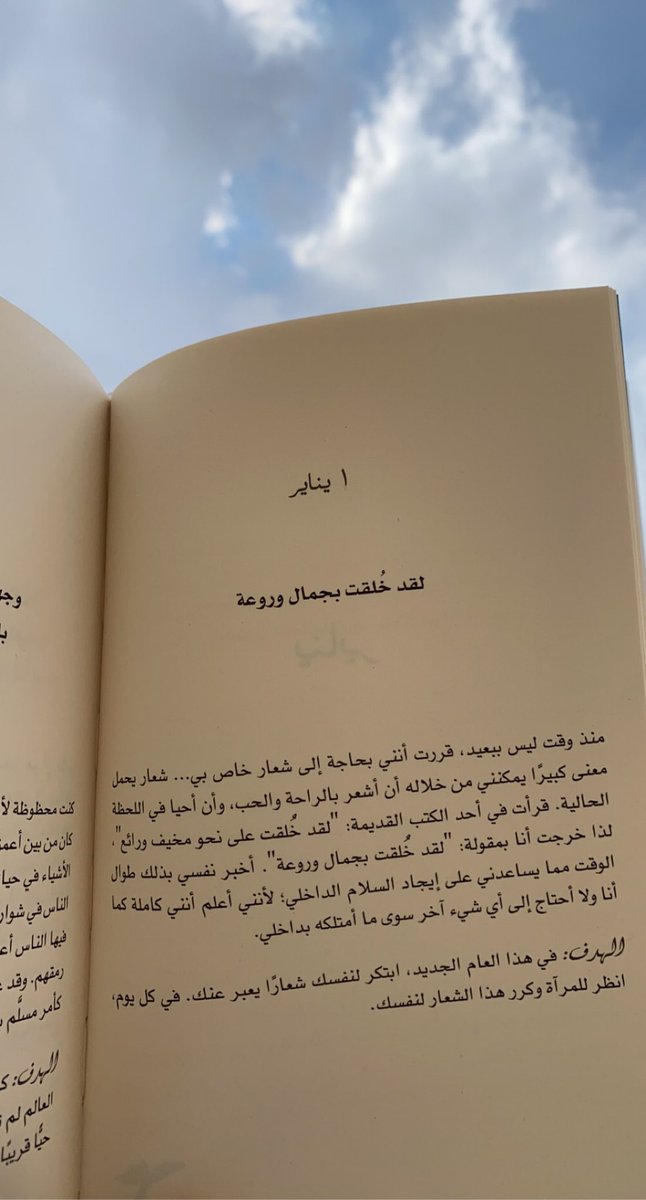 ١ يناير
لقد خُلقت بجمال وروعة
يناير
منذ وقت ليس ببعيد، قررت أنني بحاجة إلى شعار خاص بي... شعار يحمل
معنى كبيرًا يمكنني من خلاله أن أشعر بالراحة والحب، وأن أحيا في اللحظة
الحالية. قرأت في أحد الكتب القديمة: "لقد خُلقت على نحو مخيف ورائع"،
لذا خرجت أنا بمقولة: "لقد خُلقت بجمال وروعة". أخبر نفسي بذلك طوال
الوقت مما يساعدني على إيجاد السلام الداخلي؛ لأنني أعلم أنني كاملة كما
أنا ولا أحتاج إلى أي شيء آخر سوى ما أمتلكه بداخلي.
الهدف: في هذا العام الجديد، ابتكر لنفسك شعارًا يعبر عنك. في كل يوم،
انظر للمرآة وكرر هذا الشعار لنفسك.
كنت محظوظة
كان من بين
الأشياء في
الناس في
فيها الناس
رمقهم. وقد
كأمر مسلَّم
الهدف:
العالم لم
حيًّا قريبًا